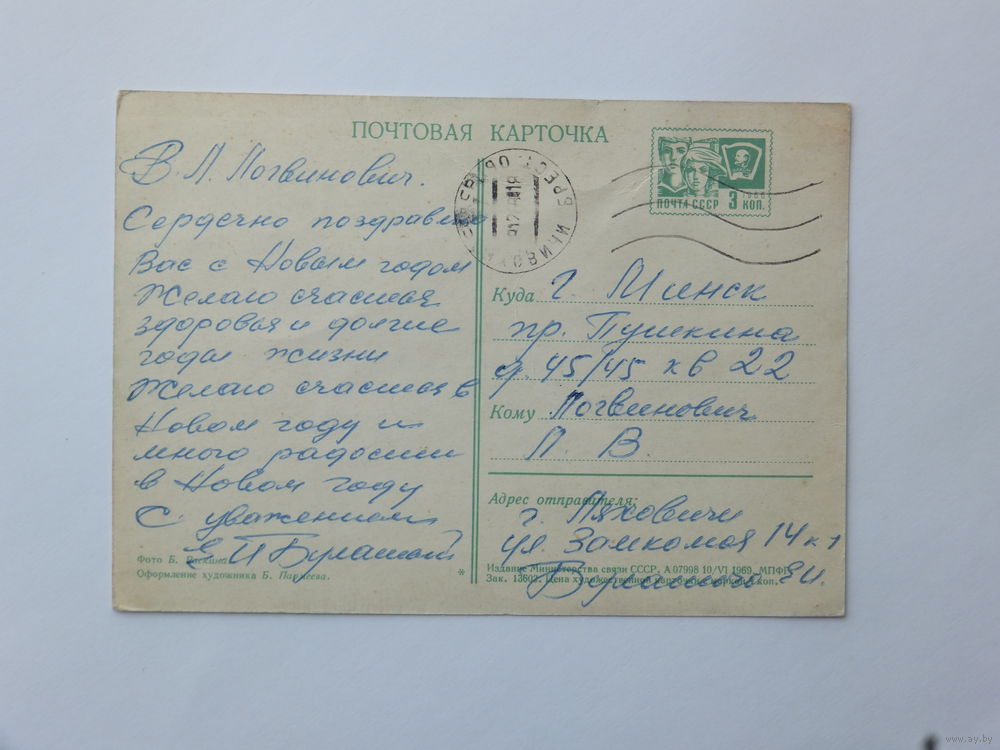 ПОЧТОВАЯ КАРТОЧКА
В. П. Логвинович.
Сердечно поздравляю
Вас с Новым годом
Желаю счастья
здоровья и долгие
годы жизни
Желаю счастья в
Новом году и
много радости
в Новом году
С уважением
Е И
Фото Б. Раскина
Оформление художника Б. Пармеева.
*
ПОЧТА СССР 3 КОП.
1966
БРЕСТ ОБ
Куда г. Минск
пр. Пушкина
д. 45/45 кв 22
Кому Логвинович
П. В.
Адрес отправителя:
г. Ляховичи
ул. 14 к 1
Издание Министерства связи СССР. А 07998 10/VI 1969. МПФГ.
Зак. 13603. Цена художественной карточки с маркой 4 коп.
www.ay.by